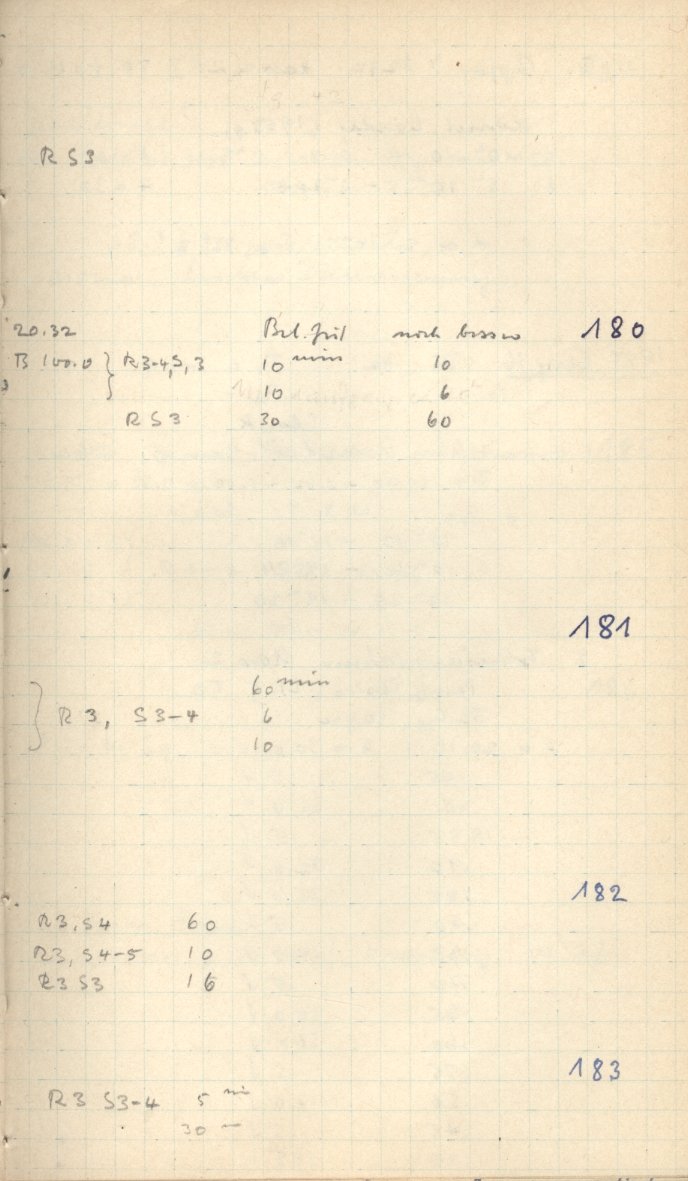 R S3
20.32 Bel. Zeit noch besser 180
B 100.0 } R3-4, S, 3 10 min 10
10 6
R S3 30 60
181
60 min
} R 3, S 3-4 6
10
182
R3, S4 60
R3, S4-5 10
R3 S3 16
183
R3 S3-4 5 min
30